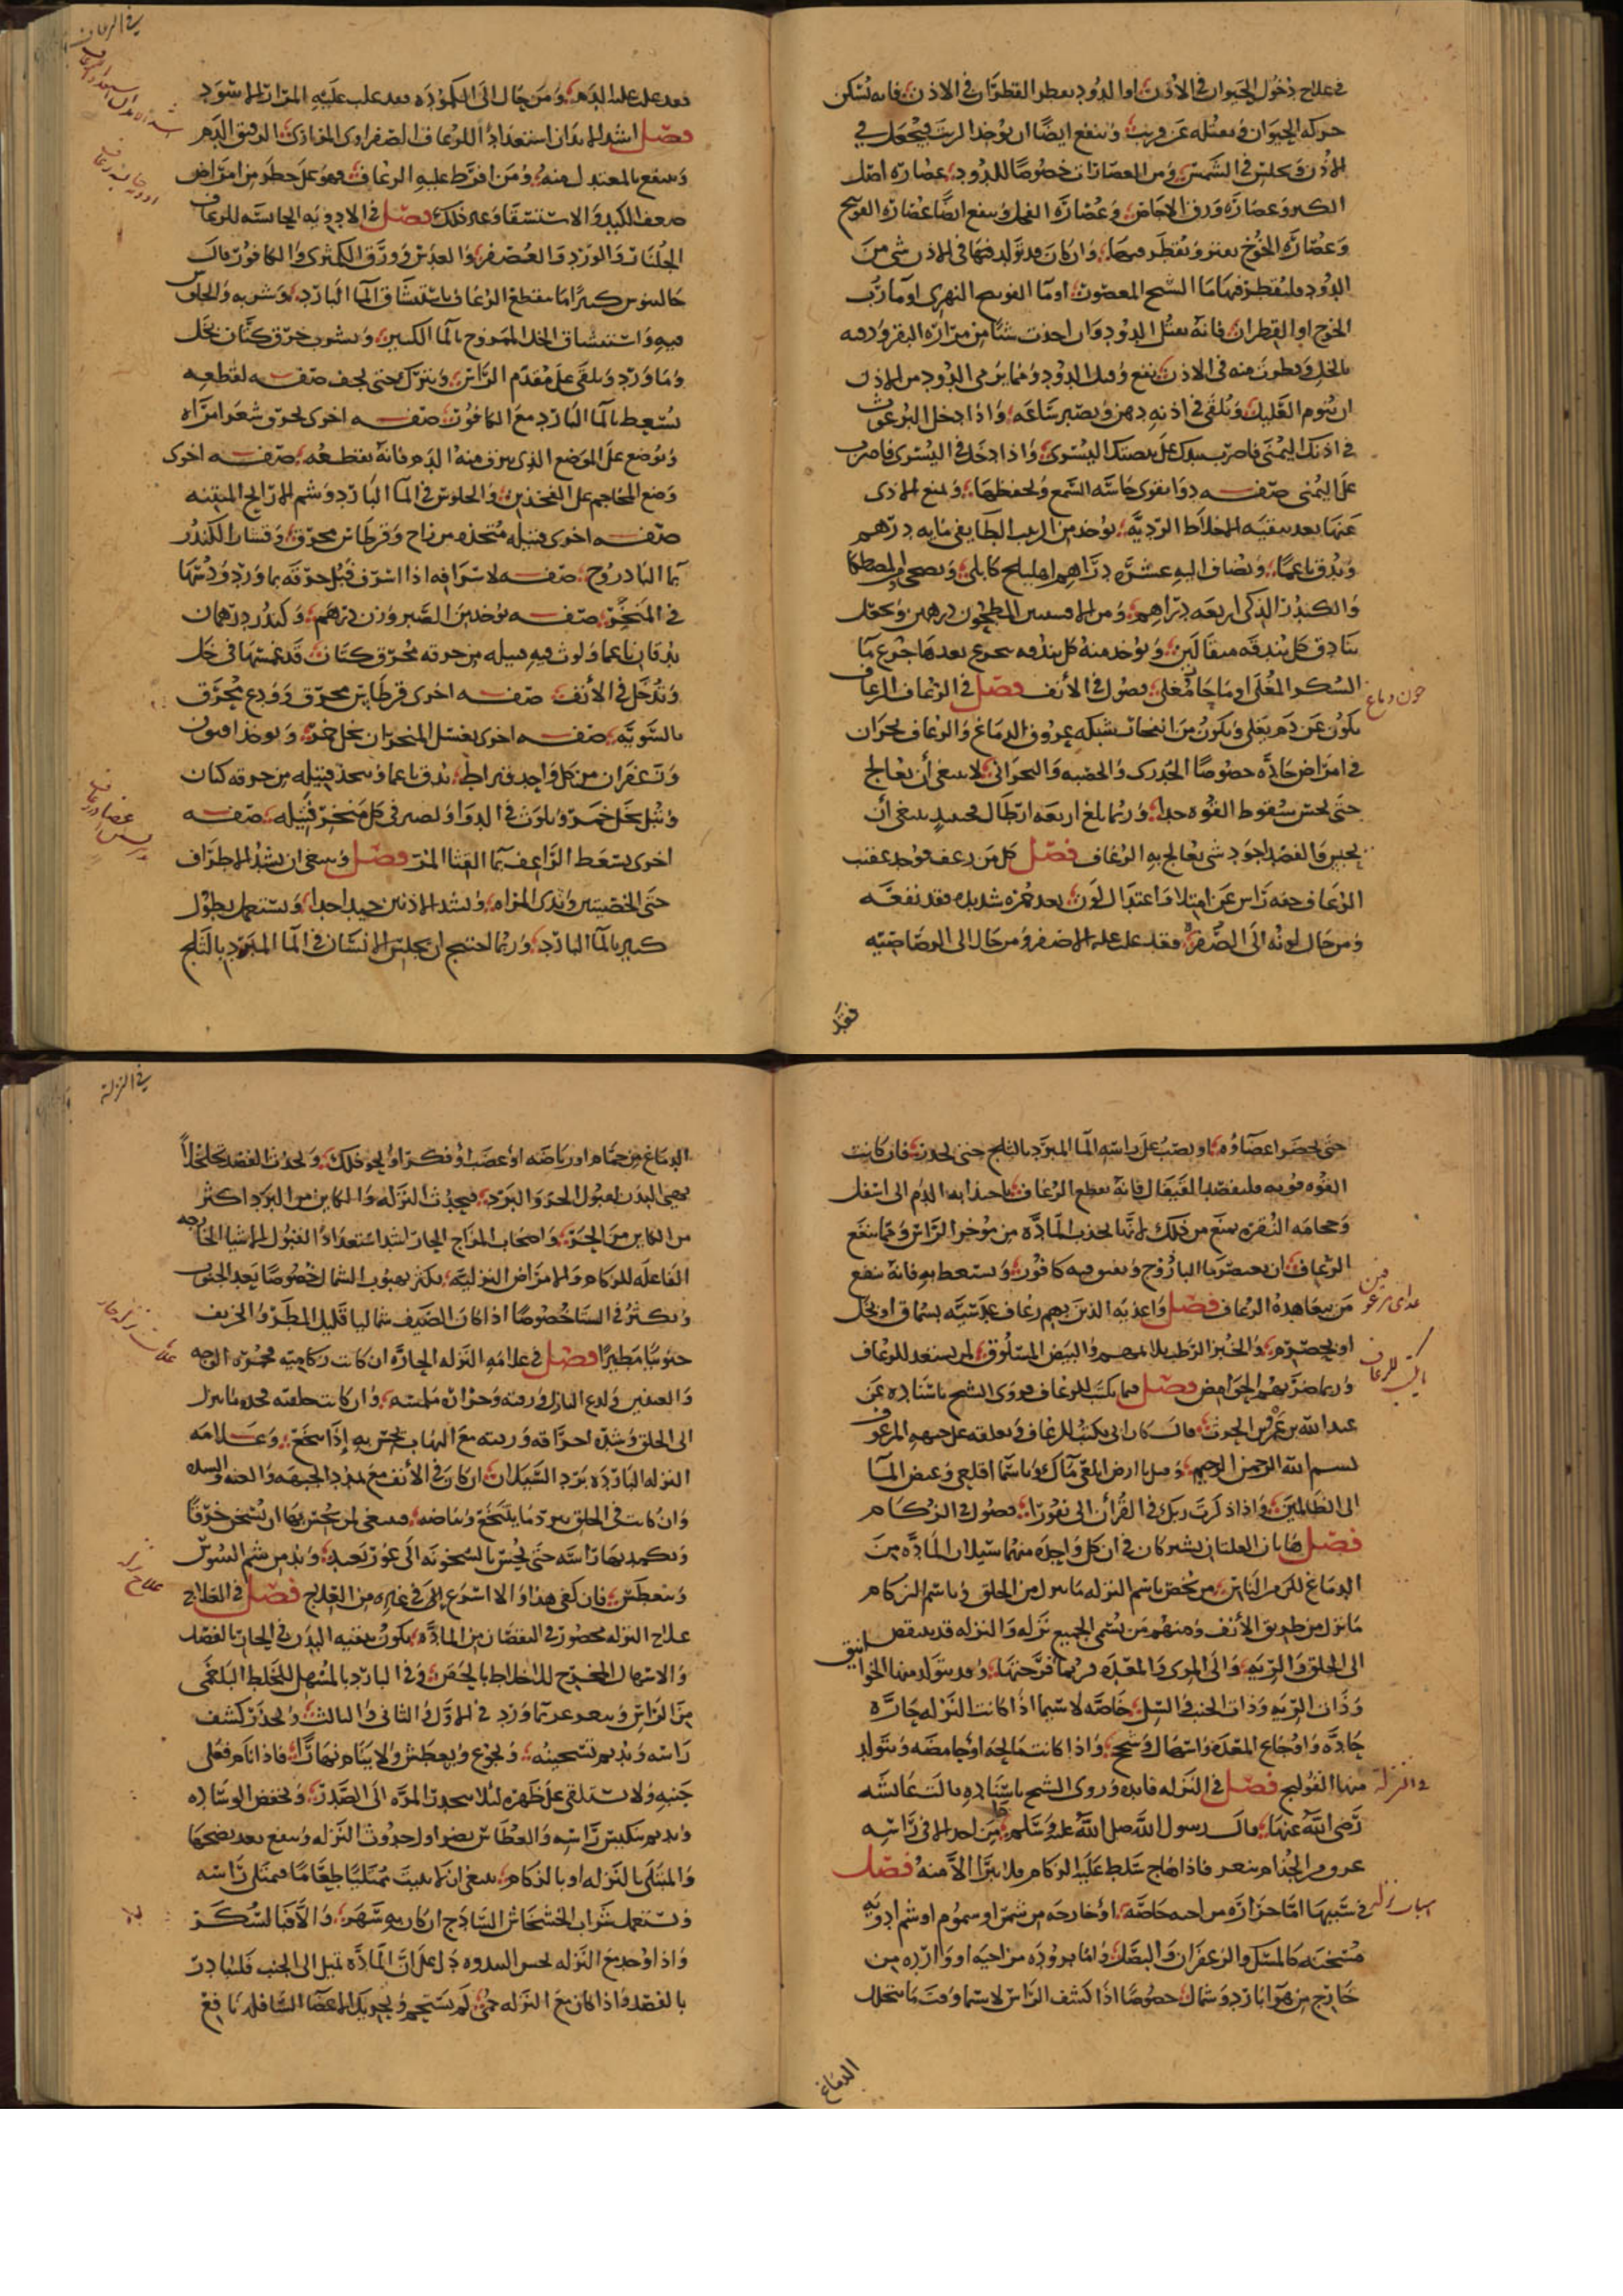 في علاج دخول الحيوان في الاذن او الدود يقطر القطران في الاذن فانه يسكن
حركة الحيوان ويقتله عن قريب وينفع ايضا ان يؤخذ الزيت فيجعل في
الاذن ويجلس في الشمس ومن العصارات خصوصا للدود عصارة اصل
الكبر وعصارة ورق الاجاص وعصارة الفجل وينفع ايضا عصارة الفوتنج
وعصارة الخوخ يفتر ويقطر فيها وان كان قد تولد فيها في الاذن شي من
الدود فليقطر فيها ما الشيح المعصور او ما الفوتنج النهري او ما ورق
الخوخ او القطران فانه يقتل الدود وان اخذت شيا من مرارة البقر ودفته
بالخل وقطرت منه في الاذن ينفع وقتل الدود ومما يرمي الدود من الاذن
ان ينوم العليل ويلقى في اذنه دهن ويصبر ساعة واذا دخل البرغوث
في اذنك اليمنى فاضرب بيدك على بيضتك اليسرى واذا دخل في اليسرى فاضرب
على اليمنى صفة دوا يقوي حاسة السمع ويحفظها ويمنع الاذى
عنها بعد تنقية الاخلاط الردية يؤخذ من الزبيب الطايفي ماية درهم
ويدق ناعما ويضاف اليه عشرة دراهم اهليلج كابلي ومن المصطكا
والكندر الذكر اربعة دراهم ومن الافسنتين المطحون درهمين ويجعل
بنادق كل بندقة مثقالين ويؤخذ منه كل بندقة يتجرع بعدها جرع ما
السكر المغلي او ما حار مغلي فصول في الانف فصل في الرعاف الرعاف
خون دماغ
يكون عن دم يغلي ويكون من انفجار شبكة عروق الدماغ والرعاف بحران
في امراض حادة خصوصا الجدري والحصبة والبحراني لا ينبغي ان يعالج
حتى يحس سقوط القوة جدا وربما بلغ اربعة ارطال فحينيذ ينبغي ان
يحبس والفصد اجود شي يعالج به الرعاف فصل كل من رعف فوجد عقيب
الرعاف خفة راس عن امتلا واعتدال لون بعد حمرة شديدة فقد نفعه
ومن حال لونه الى الصفرة فقد غلب عليه الاصفر ومن حال الى الرصاصية
فقد
في الرعاف
فقد غلب عليه البلغم ومن حال الى الكمودة فقد غلب عليه المرار الاسود
فصل اشد الابدان استعدادا للرعاف الصفراوي المراري الرقيق الدم
وينتفع بالمعتدل منه ومن افرط عليه الرعاف فهو على خطر من امراض
ضعف الكبد والاستسقا وغير ذلك فصل في الادوية الحابسة للرعاف
الجلنار والورد والعصفر والعدس وورق الكمثرى والكافور قال
جالينوس كثيرا ما ينقطع الرعاف باستنشاق الما البارد وشربه والجلوس
فيه واستنشاق الخل الممزوج بالما الكثير وتشرب خرق كتان بخل
وما ورد ويلقى على مقدم الراس ويترك حتى يجف صفة لقطعه
يسعط بالما البارد مع الكافور صفة اخرى يحرق شعر امراة
ويوضع على الموضع الذي ينزف منه الدم فانه يقطعه صفة اخرى
وضع المحاجم على الفخذين والجلوس في الما البارد وشم الارايح المنتنة
صفة اخرى فتيلة متخذة من زاج وقرطاس محرق وقشار الكندر
بما البادروج صفة لاستراقه اذا اسرف فتل خرقة بما ورد ودسها
في المنخر صفة يؤخذ من الصبر وزن درهم وكندر درهمان
يدقان ناعما ويلوث فيه فتيلة من خرقة محرق كتان قد غمستها في خل
وتدخل في الانف صفة اخرى قرطاس محرق وودع محرق
بالسوية صفة اخرى يغسل المنخران بخل خمر ويؤخذ افيون
وزعفران من كل واحد قيراط يدق ناعما ويتخذ فتيلة من خرقة كتان
وتبل بخل خمر ويلوث في الدوا ويصير في كل منخر فتيلة صفة
اخرى يسعط الراعف بما القثا المر فصل وينبغي ان يشد الاطراف
حتى الخصيتين وثدي المراة وتشد الاذنين جيدا جدا ويستعمل نطول
كثير بالما البارد وربما احتيج ان يجلس الانسان في الما المبرد بالثلج
حتى تخضر اعضاؤه او يصب على راسه الما المبرد بالثلج حتى يخدر فان كانت
القوة قوية فليفصد القيفال فانه يقطع الرعاف باجتذابه الدم الى اسفل
وحجامة النقرة يمنع من ذلك لانها تجذب المادة من مؤخر الراس ومما ينفع
الرعاف ان يعصر ما الباذروج ويفتق فيه كافور ويسعط به فانه ينفع
من يتعاهده الرعاف فصل واغذية الذين بهم رعاف عدسية بسماق او بخل
او بحصرم والخبز الرطب والبيض المسلوق لمن يستعد للرعاف
وربما ضر بهم الحوامض فصل فيما يكتب للرعاف روى الشيخ باسناده عن
عبد الله بن عمرو قال كان ابي يكتب للرعاف ويعلقه على جبهة المرعوف
بسم الله الرحمن الرحيم وقيل يا ارض ابلعي ماك ويا سما اقلعي وغيض الما
الى الظالمين واذا ذكرت ربك في القرآن الى نفورا فصول في الزكام
فصل هاتان العلتان يشتركان في ان كل واحدة منهما سيلان المادة من
الدماغ لكن من الناس من يخص باسم النزلة ما ينزل من الحلق وباسم الزكام
ما نزل من طريق الانف ومنهم من يسمي الجميع نزلة والنزلة قد تنقص
الى الحلق والرية والى المري والمعدة فربما قرحتها وقد يتولد منها الخوانيق
وذات الرية وذات الجنب والسل خاصة لا سيما اذا كانت النزلة حارة
حادة واوجاع المعدة واسهال وسحج واذا كانت مالحة او حامضة ويتولد
منها القولنج فصل في النزلة فايدة وروى الشيخ باسناده قالت عايشة
في النزلة
رضي الله عنها قال رسول الله صلى الله عليه وسلم من احد الا في راسه
عروق من الجذام تنعر فاذا هاج سلط عليه الزكام فصل
اسباب نزله
في سببها اما حرارة خاصة او خارجة من شمس او سموم او شم ادوية
مسخنة كالمسك والزعفران والبصل واما برودة من او واردة من
خارج من هوا بارد وشمال خصوصا اذا كشف الراس لا سيما وقت ما يتخلل
الدماغ
في النزلة
الدماغ من حمام او رياضة او غضب او فكر او نحو ذلك ويحدث الفصد تخلخلا
يهيي البدن لقبول الحر والبرد فيحدث النزلة والكاين من البرد اكثر
من الكاين من الحر واصحاب المزاج الحار اشد استعدادا لقبول الاشيا الخارجة
الفاعلة للزكام والامراض النزلية يكثر بهبوب الشمال خصوصا بعد الجنوب
ويكثر في الشتا خصوصا اذا كان الصيف شماليا قليل المطر والخريف
جنوبيا مطيرا فصل في علامة النزلة الحارة ان كانت زكامية حمرة الوجه
والعينين ولذع النازل ورقته وحرارة ملمسه وان كانت حلقية فحدة ما ينزل
الى الحلق وشدة احراقه ورقته مع التهاب يحس به اذا تنخع وعلامة
النزلة الباردة برد السيلان ان كان في الانف مع تمدد الجبهة
وان كانت في الحلق ببرد ما يتنخع وبياضه فينبغي لمن يحس بها ان يسخن خرقا
ويكمد بها راسه حتى يحس بالسخونة الى غور بعيد ويديم شم السونيز
ويتعطس فان كفى هذا والا اسرع الى غيره من العلاج فصل في العلاج
علاج النزلة محصور في النقصان من المادة يكون بتنقية البدن في الحار بالفصد
والاسهال المخرج للاخلاط بالحقن وفي البارد بالمسهل للخلط البلغمي
من الراس وبما ورد في الاول والثاني والثالث ويحذر كشف
راسه ويديم تسخينه ويجوع ويعطش ولا ينام نهارا فاذا نام فعلى
جنبه ولا يستلقي على ظهره ليلا تنحدر المرة الى الصدر ويخفض الوسادة
ويديم تنكيس راسه والعطاس يضر اول حدوث النزلة وينفع بعد نضجها
والمبتلى بالنزلة او بالزكام ينبغي ان لا يبيت ممتليا طعاما فيمتلي راسه
ويستعمل شراب الخشخاش الساذج ان كان به سهر والا فبالسكر
واذا وجد مع النزلة دل على ان المادة تميل الى الجنب فليبادر
بالفصد واذا كان مع النزلة حمى لم يستحم وتحريك الاعضا السافلة نافع